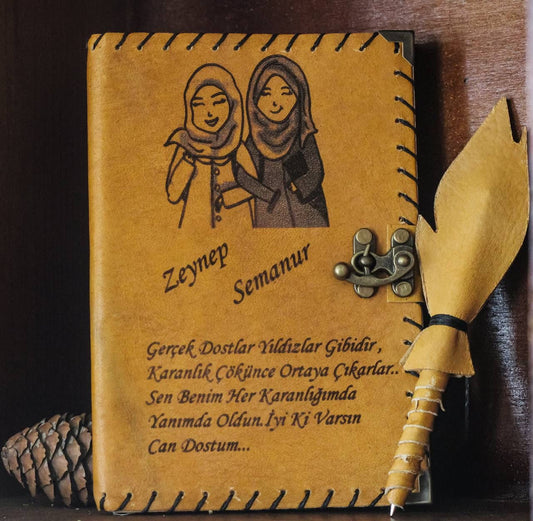 Zeynep
Semanur
Gerçek Dostlar Yıldızlar Gibidir,
Karanlık Çökünce Ortaya Çıkarlar..
Sen Benim Her Karanlığımda
Yanımda Oldun.İyi Ki Varsın
Can Dostum...